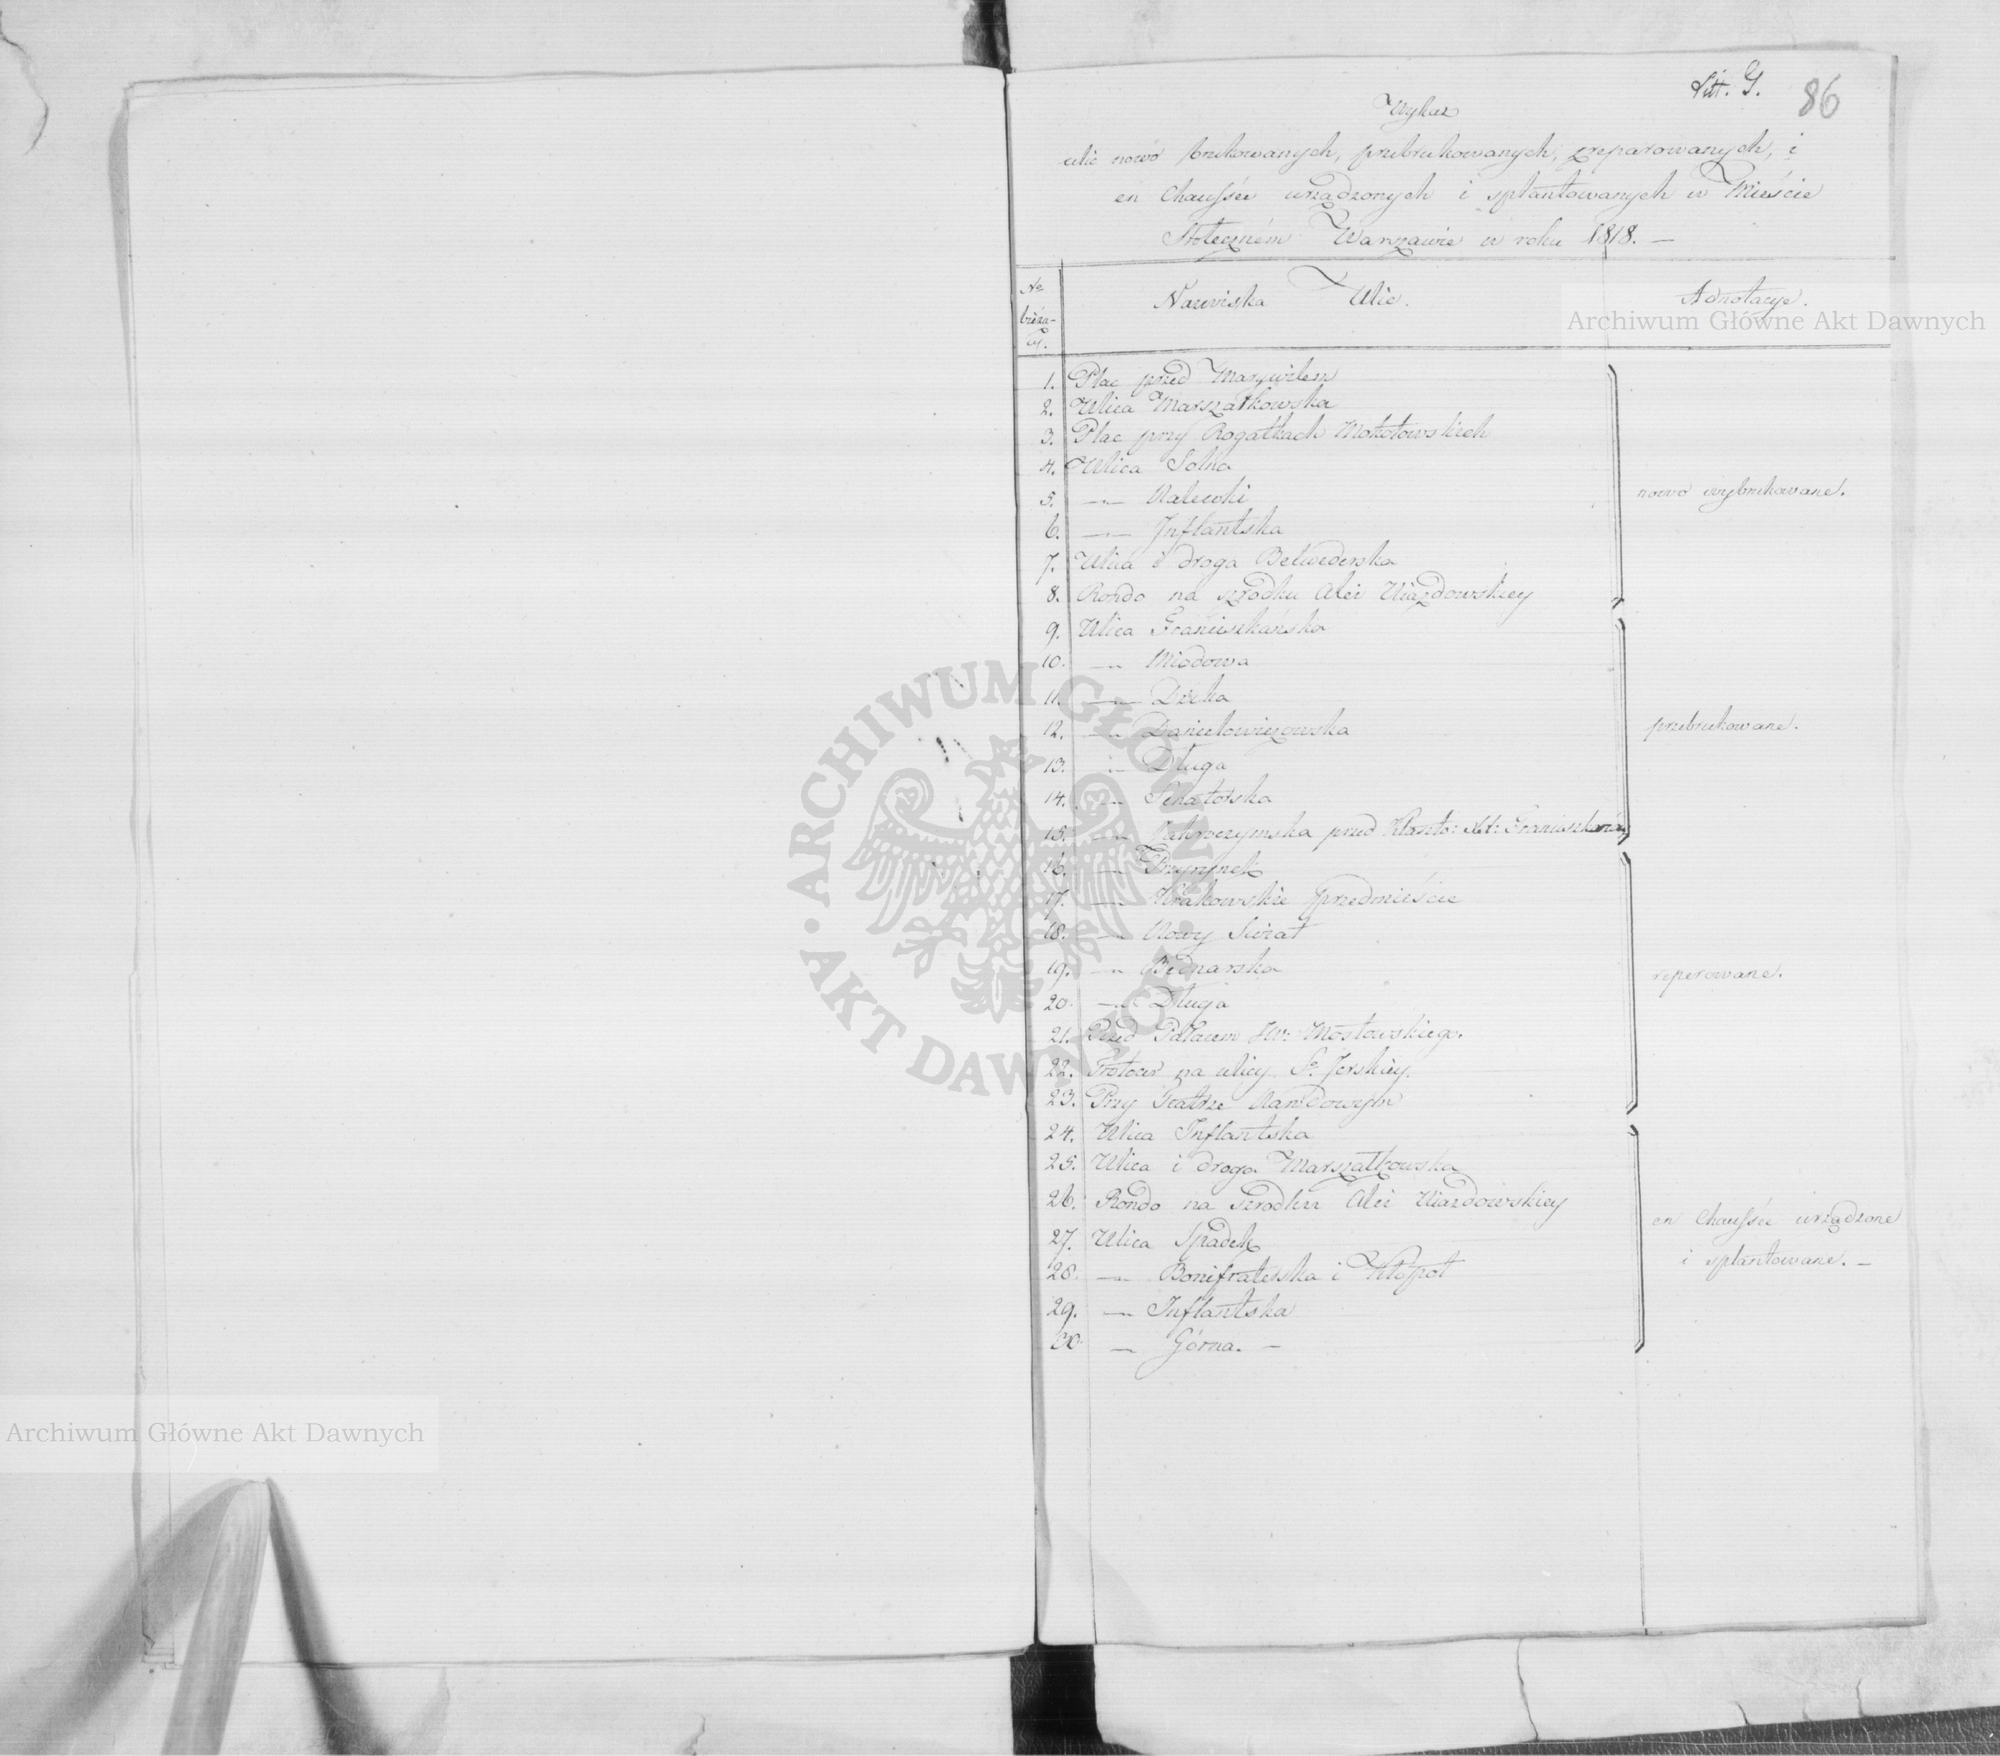 Litt. G. 86
Wykaz
ulic nowo brukowanych, przebrukowanych, zreparowanych, i
en Chaussée urządzonych i splantowanych w Mieście
Stołeczném Warszawie w roku 1818. —
No bieżący. Nazwiska Ulic. Adnotacye.
1. Plac przed Marywilem
2. Ulica Marszałkowska
3. Plac przy Rogatkach Mokotowskich
4. Ulica Solna
5. —„— Nalewki
nowo wybrukowane.
6. —„— Inflantska
7. Ulica i droga Belwederska
8. Rondo na szrodku Alei Uiazdowskiey
9. Ulica Franciszkańska
10. —„ Miodowa
11. —„— Dzika
12. —„ Daniełowiczowska
przebrukowane.
13. „— Długa
14. —„ Senatorska
15. —„ Zakroczymska przed Klaszto: XX: Franciszkanów
16. —„ Przyrynek
17. —„ Krakowskie Przedmieście
18. —„ Nowy Swiat
19. —„ Bednarska
reperowane.
20. —„ Długa
21. Przed Pałacem JW: Mostowskiego.
22. Trotoar na ulicy Sto Jerskiey.
23. Przy Teatrze Narodowym
24. Ulica Inflantska
25. Ulica i droga Marszałkowska
26. Rondo na szrodku Alei Uiazdowskiey
27. Ulica Spadek
en Chaussée urządzone
i splantowane. —
28. —„ Bonifraterska i Kłopot
29. —„ Inflantska
30. —„ Górna. —
Archiwum Główne Akt Dawnych
Archiwum Główne Akt Dawnych
ARCHIWUM GŁÓWNE · AKT DAWNYCH ·